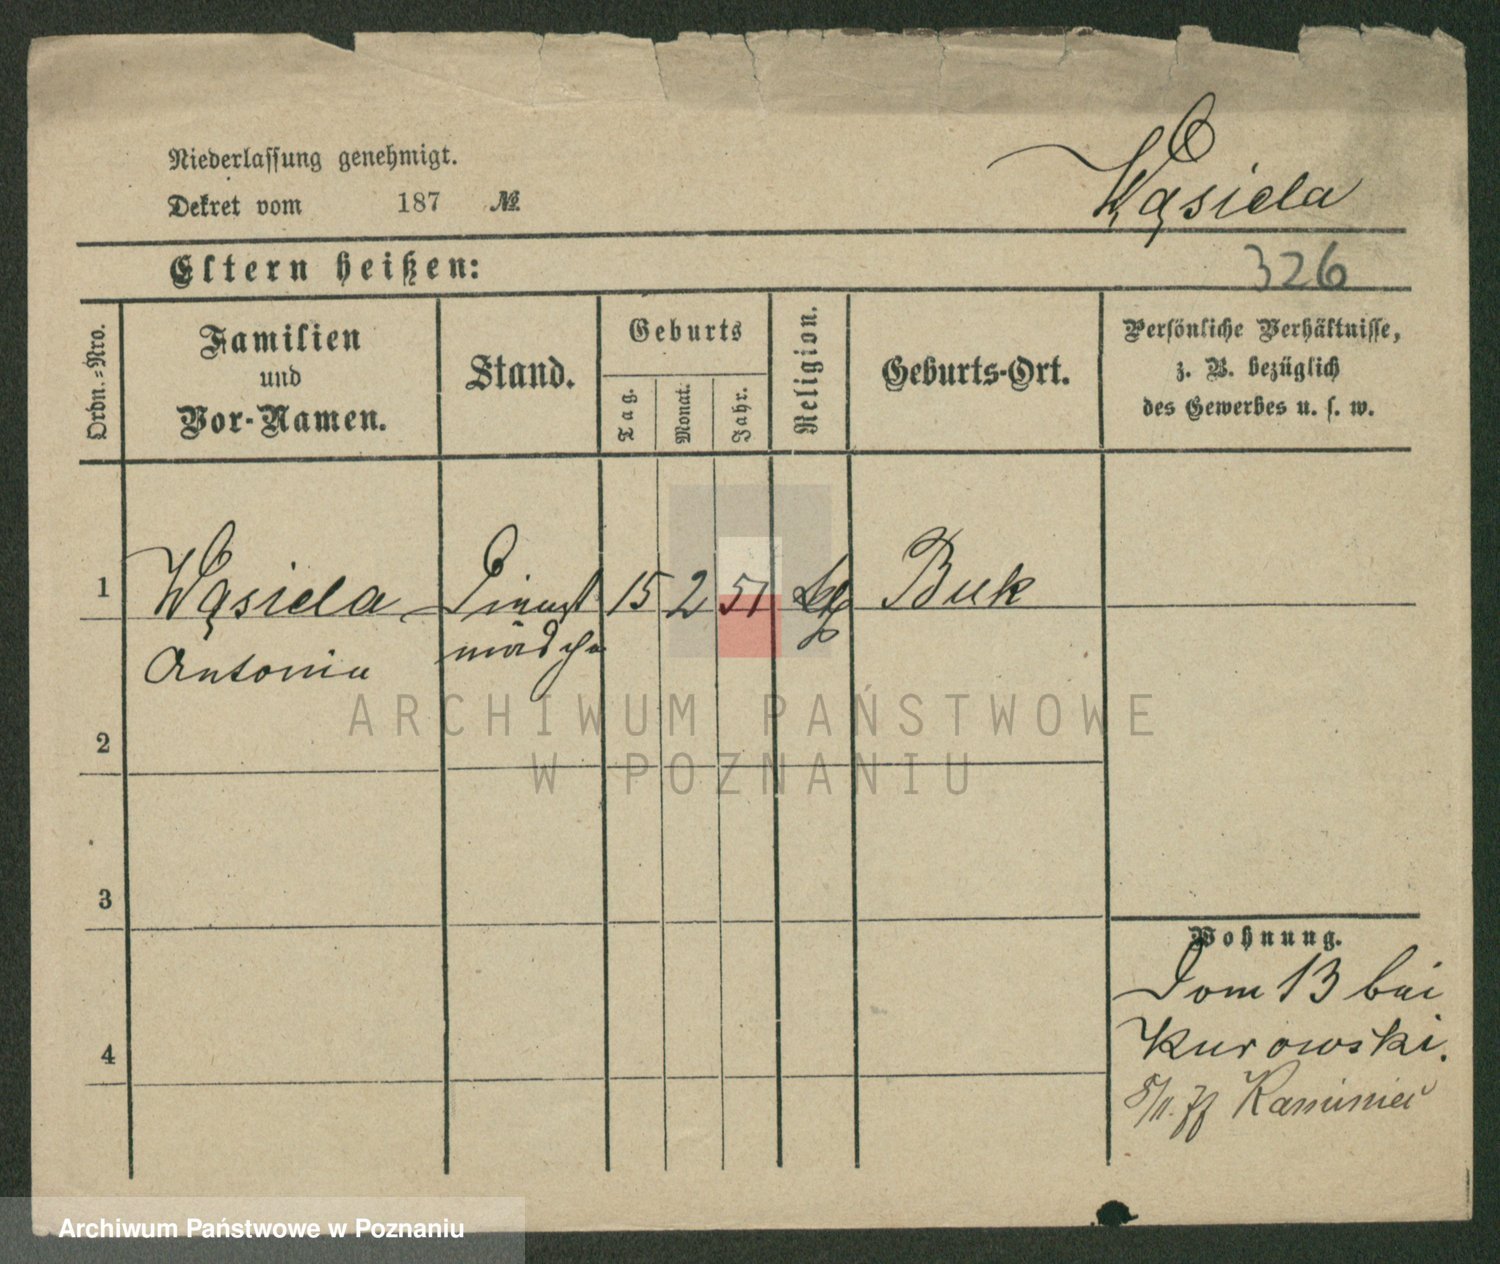 Niederlassung genehmigt.
Dekret vom 187 №
Wąsiela
Eltern heißen:
326
Ordn.-Nro.
Familien
und
Vor-Namen.
Stand.
Geburts
Tag.
Monat.
Jahr.
Religion.
Geburts-Ort.
Persönliche Verhältnisse,
z. B. bezüglich
des Gewerbes u. s. w.
1
Wąsiela Dienst 15 2 51 Buk
Antonia mädch
2
3
4
Wohnung.
Dom 13 bei
Kurowski.
ARCHIWUM PAŃSTWOWE
W POZNANIU
Archiwum Państwowe w Poznaniu